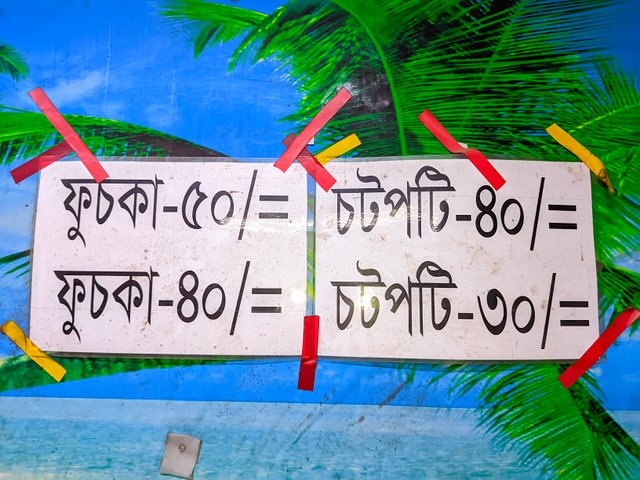 ফুচকা-৫০/=
ফুচকা-৪০/=
চটপটি-৪০/=
চটপটি-৩০/=